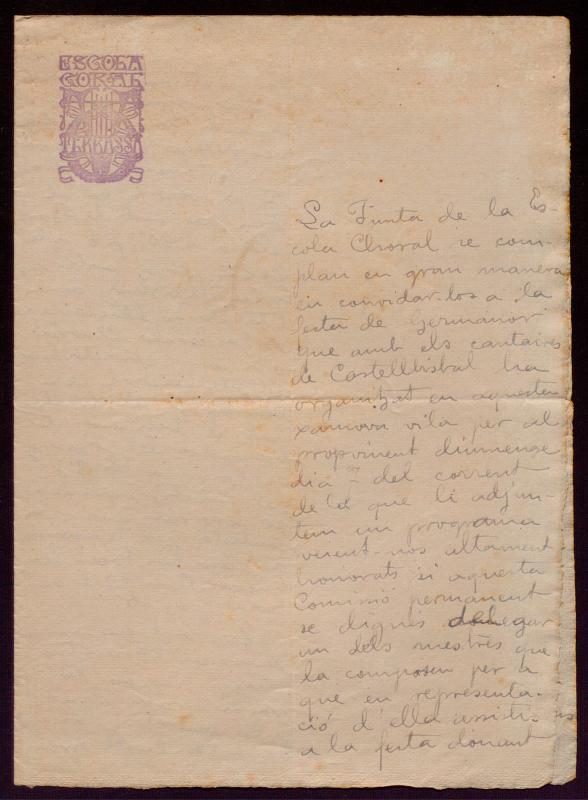 ESCOLA
CORAL
TERRASSA
La Junta de la Es-
cola Choral se com-
plau en gran manera
en convidar-los a la
festa de Germanor
que amb els cantaires
de Castellbisbal ha
organitzat en aquesta
xamosa vila per al
propvinent diumenge
dia 7 del corrent
de la que li adjun-
tem un programa
veient-nos altament
honorats si aquesta
Comissió permanent
se dignés delegar
un dels mestres que
la composen per a
que en representa-
ció d'ella assistís
a la festa donant